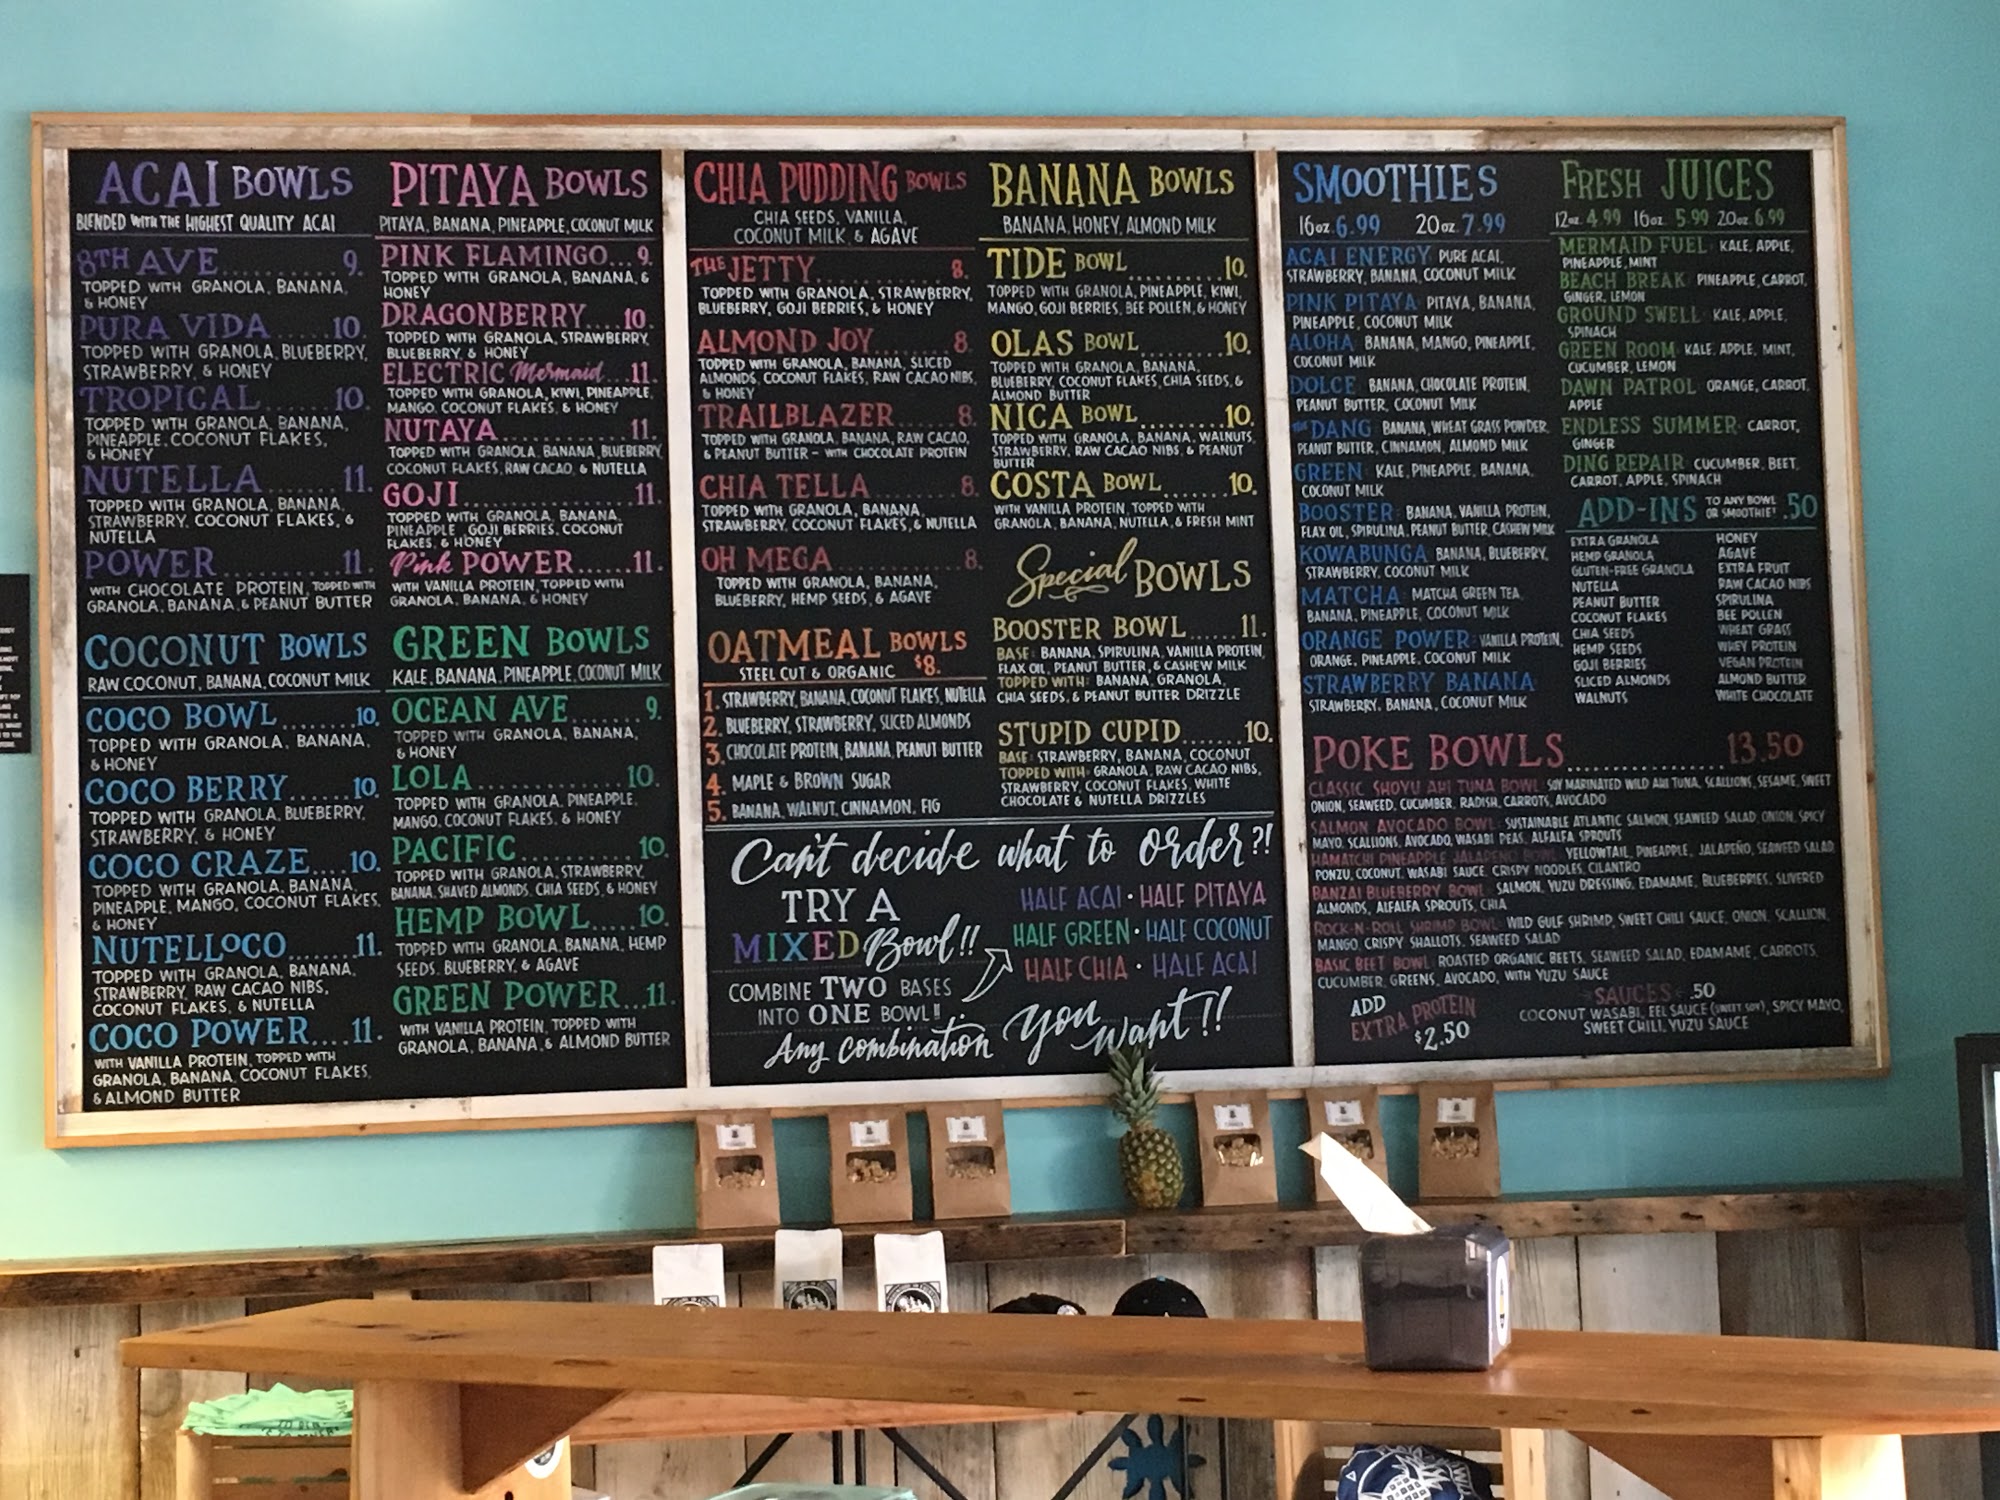 ACAI BOWLS
BLENDED WITH THE HIGHEST QUALITY ACAI
8TH AVE........9.
TOPPED WITH GRANOLA, BANANA,
& HONEY
PURA VIDA......10.
TOPPED WITH GRANOLA, BLUEBERRY,
STRAWBERRY, & HONEY
TROPICAL.......10.
TOPPED WITH GRANOLA, BANANA,
PINEAPPLE, COCONUT FLAKES,
& HONEY
NUTELLA........11.
TOPPED WITH GRANOLA, BANANA,
STRAWBERRY, COCONUT FLAKES, &
NUTELLA
POWER..........11.
WITH CHOCOLATE PROTEIN, TOPPED WITH
GRANOLA, BANANA, & PEANUT BUTTER
COCONUT BOWLS
RAW COCONUT, BANANA, COCONUT MILK
COCO BOWL.......10.
TOPPED WITH GRANOLA, BANANA,
& HONEY
COCO BERRY......10.
TOPPED WITH GRANOLA, BLUEBERRY,
STRAWBERRY, & HONEY
COCO CRAZE....10.
TOPPED WITH GRANOLA, BANANA,
PINEAPPLE, MANGO, COCONUT FLAKES,
& HONEY
NUTELLOCO.......11.
TOPPED WITH GRANOLA, BANANA,
STRAWBERRY, RAW CACAO NIBS,
COCONUT FLAKES, & NUTELLA
COCO POWER....11.
WITH VANILLA PROTEIN, TOPPED WITH
GRANOLA, BANANA, COCONUT FLAKES,
& ALMOND BUTTER
PITAYA BOWLS
PITAYA, BANANA, PINEAPPLE, COCONUT MILK
PINK FLAMINGO...9.
TOPPED WITH GRANOLA, BANANA, &
HONEY
DRAGONBERRY....10.
TOPPED WITH GRANOLA, STRAWBERRY,
BLUEBERRY, & HONEY
ELECTRIC Mermaid...11.
TOPPED WITH GRANOLA, KIWI, PINEAPPLE,
MANGO, COCONUT FLAKES, & HONEY
NUTAYA............11.
TOPPED WITH GRANOLA, BANANA, BLUEBERRY,
COCONUT FLAKES, RAW CACAO, & NUTELLA
GOJI...............11.
TOPPED WITH GRANOLA, BANANA,
PINEAPPLE, GOJI BERRIES, COCONUT
FLAKES, & HONEY
Pink POWER......11.
WITH VANILLA PROTEIN, TOPPED WITH
GRANOLA, BANANA, & HONEY
GREEN BOWLS
KALE, BANANA, PINEAPPLE, COCONUT MILK
OCEAN AVE.......9.
TOPPED WITH GRANOLA, BANANA,
& HONEY
LOLA...............10.
TOPPED WITH GRANOLA, PINEAPPLE,
MANGO, COCONUT FLAKES, & HONEY
PACIFIC...........10.
TOPPED WITH GRANOLA, STRAWBERRY,
BANANA, SHAVED ALMONDS, CHIA SEEDS, & HONEY
HEMP BOWL.....10.
TOPPED WITH GRANOLA, BANANA, HEMP
SEEDS, BLUEBERRY, & AGAVE
GREEN POWER...11.
WITH VANILLA PROTEIN, TOPPED WITH
GRANOLA, BANANA, & ALMOND BUTTER
CHIA PUDDING BOWLS
CHIA SEEDS, VANILLA,
COCONUT MILK, & AGAVE
THE JETTY...............8.
TOPPED WITH GRANOLA, STRAWBERRY,
BLUEBERRY, GOJI BERRIES, & HONEY
ALMOND JOY.........8.
TOPPED WITH GRANOLA, BANANA, SLICED
ALMONDS, COCONUT FLAKES, RAW CACAO NIBS,
& HONEY
TRAILBLAZER........8.
TOPPED WITH GRANOLA, BANANA, RAW CACAO,
& PEANUT BUTTER - WITH CHOCOLATE PROTEIN
CHIA TELLA..........8.
TOPPED WITH GRANOLA, BANANA,
STRAWBERRY, COCONUT FLAKES, & NUTELLA
OH MEGA.............8.
TOPPED WITH GRANOLA, BANANA,
BLUEBERRY, HEMP SEEDS, & AGAVE
OATMEAL BOWLS
STEEL CUT & ORGANIC $8.
1. STRAWBERRY, BANANA, COCONUT FLAKES, NUTELLA
2. BLUEBERRY, STRAWBERRY, SLICED ALMONDS
3. CHOCOLATE PROTEIN, BANANA, PEANUT BUTTER
4. MAPLE & BROWN SUGAR
5. BANANA, WALNUT, CINNAMON, FIG
BANANA BOWLS
BANANA, HONEY, ALMOND MILK
TIDE BOWL..........10.
TOPPED WITH GRANOLA, PINEAPPLE, KIWI,
MANGO, GOJI BERRIES, BEE POLLEN, & HONEY
OLAS BOWL.........10.
TOPPED WITH GRANOLA, BANANA,
BLUEBERRY, COCONUT FLAKES, CHIA SEEDS, &
ALMOND BUTTER
NICA BOWL..........10.
TOPPED WITH GRANOLA, BANANA, WALNUTS,
STRAWBERRY, RAW CACAO NIBS, & PEANUT
BUTTER
COSTA BOWL.......10.
WITH VANILLA PROTEIN, TOPPED WITH
GRANOLA, BANANA, NUTELLA, & FRESH MINT
Special BOWLS
BOOSTER BOWL......11.
BASE: BANANA, SPIRULINA, VANILLA PROTEIN,
FLAX OIL, PEANUT BUTTER, & CASHEW MILK
TOPPED WITH: BANANA, GRANOLA,
CHIA SEEDS, & PEANUT BUTTER DRIZZLE
STUPID CUPID.......10.
BASE: STRAWBERRY, BANANA, COCONUT
TOPPED WITH: GRANOLA, RAW CACAO NIBS,
STRAWBERRY, COCONUT FLAKES, WHITE
CHOCOLATE & NUTELLA DRIZZLES
Can't decide what to order?!
TRY A
MIXED Bowl!!
COMBINE TWO BASES
INTO ONE BOWL!!
HALF ACAI • HALF PITAYA
HALF GREEN • HALF COCONUT
HALF CHIA • HALF ACAI
Any combination you want!!
SMOOTHIES
16oz. 6.99 20oz. 7.99
ACAI ENERGY: PURE ACAI,
STRAWBERRY, BANANA, COCONUT MILK
PINK PITAYA: PITAYA, BANANA,
PINEAPPLE, COCONUT MILK
ALOHA: BANANA, MANGO, PINEAPPLE,
COCONUT MILK
DOLCE: BANANA, CHOCOLATE PROTEIN,
PEANUT BUTTER, COCONUT MILK
THE DANG: BANANA, WHEAT GRASS POWDER,
PEANUT BUTTER, CINNAMON, ALMOND MILK
GREEN: KALE, PINEAPPLE, BANANA,
COCONUT MILK
BOOSTER: BANANA, VANILLA PROTEIN,
FLAX OIL, SPIRULINA, PEANUT BUTTER, CASHEW MILK
KOWABUNGA: BANANA, BLUEBERRY,
STRAWBERRY, COCONUT MILK
MATCHA: MATCHA GREEN TEA,
BANANA, PINEAPPLE, COCONUT MILK
ORANGE POWER: VANILLA PROTEIN,
ORANGE, PINEAPPLE, COCONUT MILK
STRAWBERRY BANANA:
STRAWBERRY, BANANA, COCONUT MILK
FRESH JUICES
12oz. 4.99 16oz. 5.99 20oz. 6.99
MERMAID FUEL: KALE, APPLE,
PINEAPPLE, MINT
BEACH BREAK: PINEAPPLE, CARROT,
GINGER, LEMON
GROUND SWELL: KALE, APPLE,
SPINACH
GREEN ROOM: KALE, APPLE, MINT,
CUCUMBER, LEMON
DAWN PATROL: ORANGE, CARROT,
APPLE
ENDLESS SUMMER: CARROT,
GINGER
DING REPAIR: CUCUMBER, BEET,
CARROT, APPLE, SPINACH
ADD-INS TO ANY BOWL
OR SMOOTHIE! .50
EXTRA GRANOLA
HEMP GRANOLA
GLUTEN-FREE GRANOLA
NUTELLA
PEANUT BUTTER
COCONUT FLAKES
CHIA SEEDS
HEMP SEEDS
GOJI BERRIES
SLICED ALMONDS
WALNUTS
HONEY
AGAVE
EXTRA FRUIT
RAW CACAO NIBS
SPIRULINA
BEE POLLEN
WHEAT GRASS
WHEY PROTEIN
VEGAN PROTEIN
ALMOND BUTTER
WHITE CHOCOLATE
POKE BOWLS...................13.50
CLASSIC SHOYU AHI TUNA BOWL: SOY MARINATED WILD AHI TUNA, SCALLIONS, SESAME, SWEET
ONION, SEAWEED, CUCUMBER, RADISH, CARROTS, AVOCADO
SALMON AVOCADO BOWL: SUSTAINABLE ATLANTIC SALMON, SEAWEED SALAD, ONION, SPICY
MAYO, SCALLIONS, AVOCADO, WASABI PEAS, ALFALFA SPROUTS
HAMATCHI PINEAPPLE JALAPEÑO BOWL: YELLOWTAIL, PINEAPPLE, JALAPEÑO, SEAWEED SALAD,
PONZU, COCONUT, WASABI SAUCE, CRISPY NOODLES, CILANTRO
BANZAI BLUEBERRY BOWL: SALMON, YUZU DRESSING, EDAMAME, BLUEBERRIES, SLIVERED
ALMONDS, ALFALFA SPROUTS, CHIA
ROCK-N-ROLL SHRIMP BOWL: WILD GULF SHRIMP, SWEET CHILI SAUCE, ONION, SCALLION,
MANGO, CRISPY SHALLOTS, SEAWEED SALAD
BASIC BEET BOWL: ROASTED ORGANIC BEETS, SEAWEED SALAD, EDAMAME, CARROTS,
CUCUMBER, GREENS, AVOCADO, WITH YUZU SAUCE
ADD
EXTRA PROTEIN
$2.50
SAUCES .50
COCONUT WASABI, EEL SAUCE (SWEET SOY), SPICY MAYO,
SWEET CHILI, YUZU SAUCE